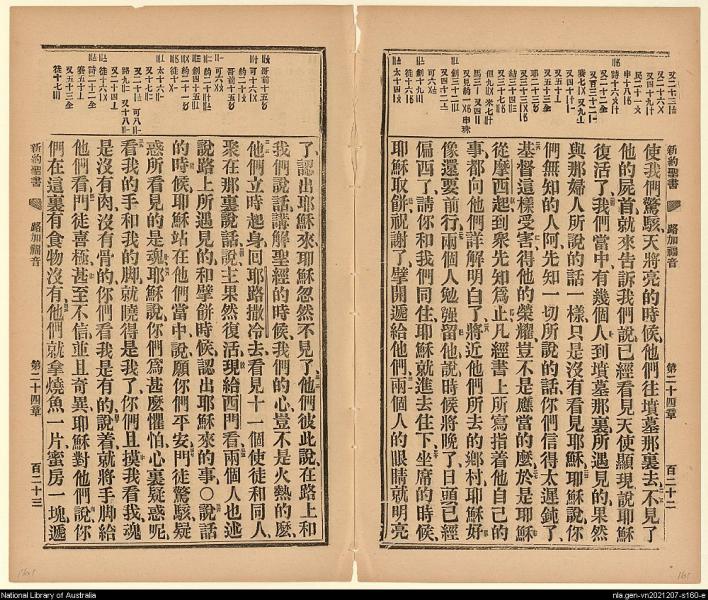 使我們驚駭、天將亮的時候、他們往墳墓那裏去、不見了
他的屍首就來告訴我們說、已經看見天使顯現、說耶穌
復活了、我們當中有幾個人到墳墓那裏、所遇見的果然
與那婦人所說的話一樣、只是沒有看見耶穌、耶穌說、你
們無知的人阿、先知一切所說的話、你們信得太遲鈍了、
基督這樣受害、得他的榮耀、豈不是應當的麽、於是耶穌
從摩西起到衆先知爲止、凡經書上所寫指着他自己的
事、都向他們詳解明白了、將近他們所去的鄉村、耶穌好
像還要前行、兩個人勉强留他說、時候將晚了、日頭已經
偏西了、請你和我們同住、耶穌就進去住下、坐席的時候
耶穌取餅祝謝了、擘開遞給他們、兩個人的眼睛就明亮
新約聖書
路加福音
第二十四章
百二十二
了、認出耶穌來、耶穌忽然不見了、他們彼此說、在路上和
我們說話、講解聖經的時候、我們的心豈不是火熱的麽
他們立時起身、回耶路撒冷去、看見十一個使徒和同人
聚在那裏說話、說主果然復活、現給西門看、兩個人也述
說路上所遇見的、和擘餅時候、認出耶穌來的事、〇說話
的時候、耶穌站在他們當中、說願你們平安、門徒驚駭疑
惑、所看見的是魂、耶穌說、你們爲甚麽懼怕、心裏疑惑呢
看我的手和我的脚、就曉得是我了、你們且摸我看我、魂
是沒有肉沒有骨的、你們看我是有的、說着就將手脚給
他們看、門徒喜極、甚至不信、並且奇異、耶穌對他們說、你
們在這裏有食物沒有、他們就拿燒魚一片、蜜房一塊、遞
新約聖書
路加福音
第二十四章
百二十三
National Library of Australia
nla.gen-vn2021207-s160-e